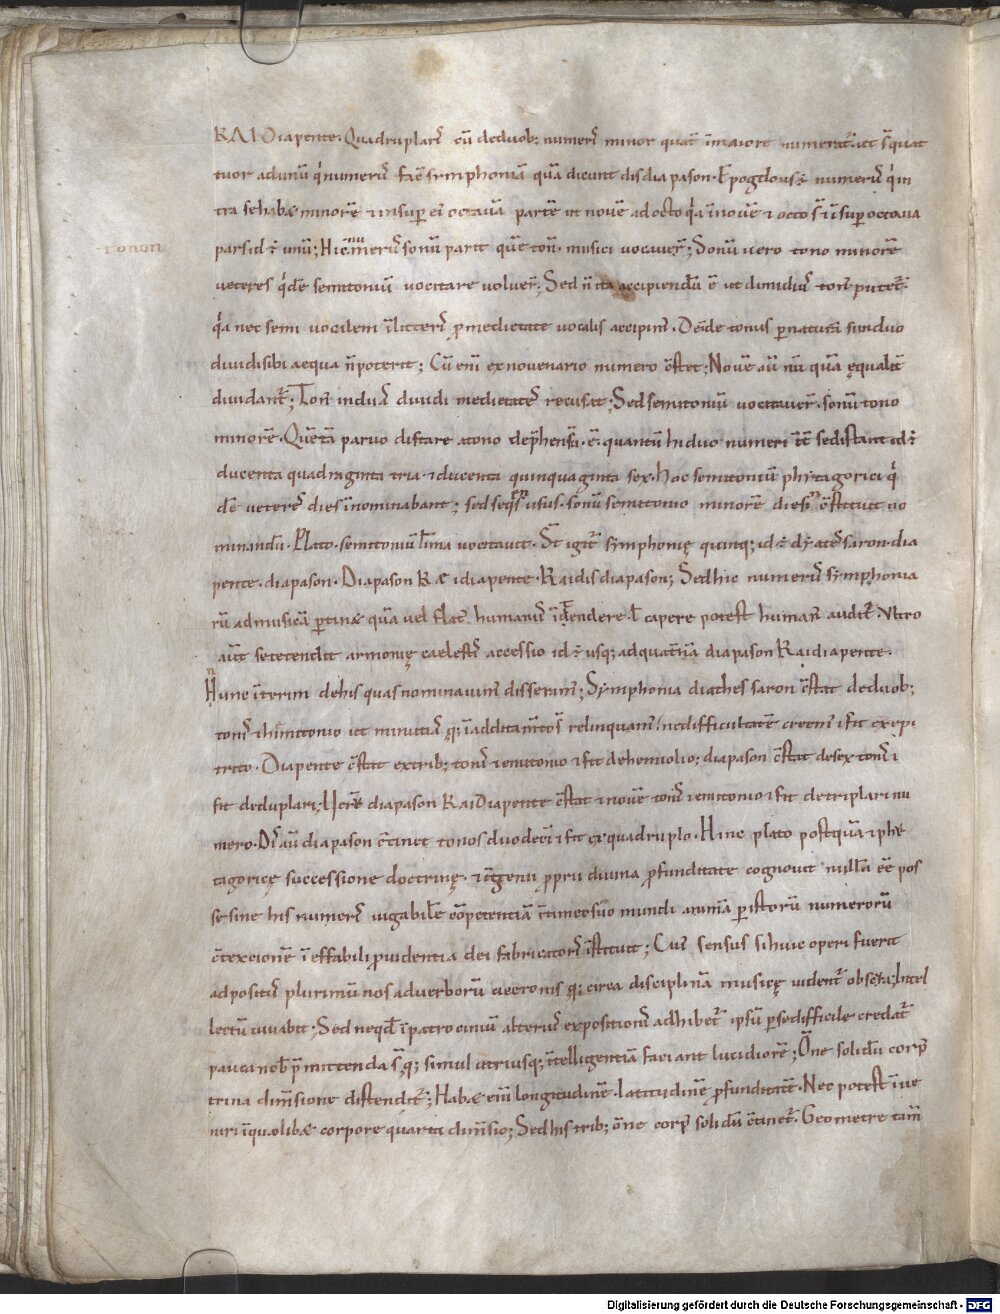 KAI Diapente. Quadruplarꝰ eū deduob; numerꝰ minor quat̄ īmaiore numerat̄. ut s̄ quat
tuor adunū q'numerꝰ fac̄ sẏmphoniā quā dicunt disdiapason. Epogdous ē numerꝰ q'in
tra se habæ minorē & insuꝑ ei octauā partē ut nouē ad octo q'a īnouē & octo s̄ & īsuꝑ octaua
tonon
pars id ē unū; Hic numerꝰ sonū parit quē ton̄ musici uocauer̄; Sonū uero tono minorē
ueteres q'dē semitoniū uocitare uoluer̄; Sed n̄ ita accipiendū ē ut dimidiū toni putet̄.
q'a nec semi uocalem īlitterꝭ ꝓ medietate uocalis accipimꝰ. Deīde tonus ꝑnaturā sui īduo
diuidi sibi aequa n̄ poterit; Cū eni exnouenario numero c̄stet; Nouē aū nū quā equalit̄
diuidant̄; Tonꝰ induā diuidi medietatēꝰ recusat; Sed semitoniū uocitauer̄. sonū tono
minorē. Quē tā paruo distare a tono dep̄hensū ē. quantū hi duo numeri īt̄ se distant id ē
ducenta quadraginta tria. & ducenti quinquaginta sex. Hoc semitoniū phẏtagorici q'
dē ueterēs diesī nominabant; sed seq̄ns usus. sonū semitonio minorē diesin c̄stituit no
minandū. Plato semitoniū līma uocitauit. St̄ igit̄ sẏmphonię quinq; id ē dẏatēsaron. dia
pente. diapason. Diapason Kæ idiapente. Kaidisdiapason; Sed hic numerꝰ sẏmphonia
rū ad musicā ꝑtinæ quā uel flatꝰ humanꝰ īt̄endere. ł capere potest humanꝰ auditꝰ. Vltro
aut̄ se tetendit armonię caelestis accessio id ē usq; ad quat̄nā diapason Kaidiapente.
Nunc īterim dehis quas nominauimꝰ disseramꝰ; Sẏmphonia diathessaron c̄stat deduob;
tonis & hemitonio ut minutiā ꝗq; īadditam̄tis relinquamꝰ ne difficultatē creemꝰ & fit ex epi
trito. Diapente c̄stat extrib; tonis & emitonio & fit dehemiolio; diapason c̄stat desex tonis &
fit deduplari; Uerū diapason KaiDiapente c̄stat & nouē tonis & emitonio & fit detriplari nu
mero. Dis aū diapason c̄tinet tonos duodeci & fit exquadruplo. Hinc plato postquā & phẏ
tagoricę successione doctrinę. & īgenii ꝓprii diuina ꝓfunditate cognouit nullā eē pos
se sine his numerꝭ iugabilē cōpetentiā ītimeo suo mundi animā ꝑ istorū numerorū
c̄texcionē īeffabili ꝓuidentia dei fabricatorꝭ īstituit; Cuiꝰ sensus si huic operi fuerit
adpositꝰ plurimū nos aduerborū ciceronis q; circa disciplinā musicę uident̄ obscura; Intel
lectū iuuabit; Sed neqd̄ īpatrociniū alteriꝰ expositionꝭ adhibet̄ ipsū ꝑse difficile credat̄
pauca nob̄ p̄mittenda s̄ q; simul utriusq; ītelligentiā faciant lucidiorē; Ōne solidū corpꝰ
trina dimsione distendit̄; Habæ enī longitudinē. latitudinē ꝓfunditatē. Nec potest īue
niri īquolibæ corpore quarta dimsio; Sed his trib; ōne corpꝰ solidū c̄tinet̄. Geometre tam̄